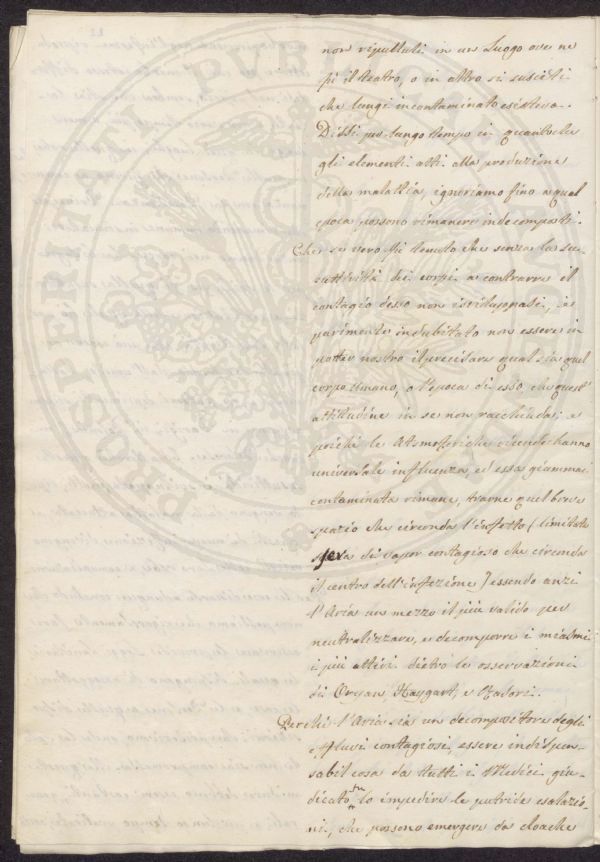 non ripullati in un Luogo ove ne
fù il teatro, o in altro si susciti
che lungi incontaminato esisteva.
Dissi per lungo tempo in quantoche
gli elementi atti alla produzione
della malattia, ignoriamo fino a qual
epoca possono rimanere indecomposti.
Che se vero fù tenuto che senza la su-
scettività dei corpi a contrarre il
contagio desso non isviluppasi, è
parimente indubitato non essere in
potter nostro il precisare qual sia quel
corpo umano, o l'epoca di esso, che quest'
attitudine in se non racchiuda; e
poichè le Atmosferiche vicende hanno
universale influenza, ed essa giammai
contaminata rimane, trarne quel breve
spazio che circonda l'infetto (limitata
sfera di vapor contagioso che circonda
il centro dell'infezione) essendo anzi
l'Aria un mezzo il più valido per
neutralizzare, e decomporre i miasmi
i più attivi dietro le osservazioni
di Haygart, e
Perchè l'Aria sia un decompositore degli
effluvi contagiosi, essere indispen-
sabil cosa da tutti i Medici giu-
dicato fu lo impedire le putride esalazio-
ni, che possono emergere da cloache
PROSPERITATI PVBLICAE